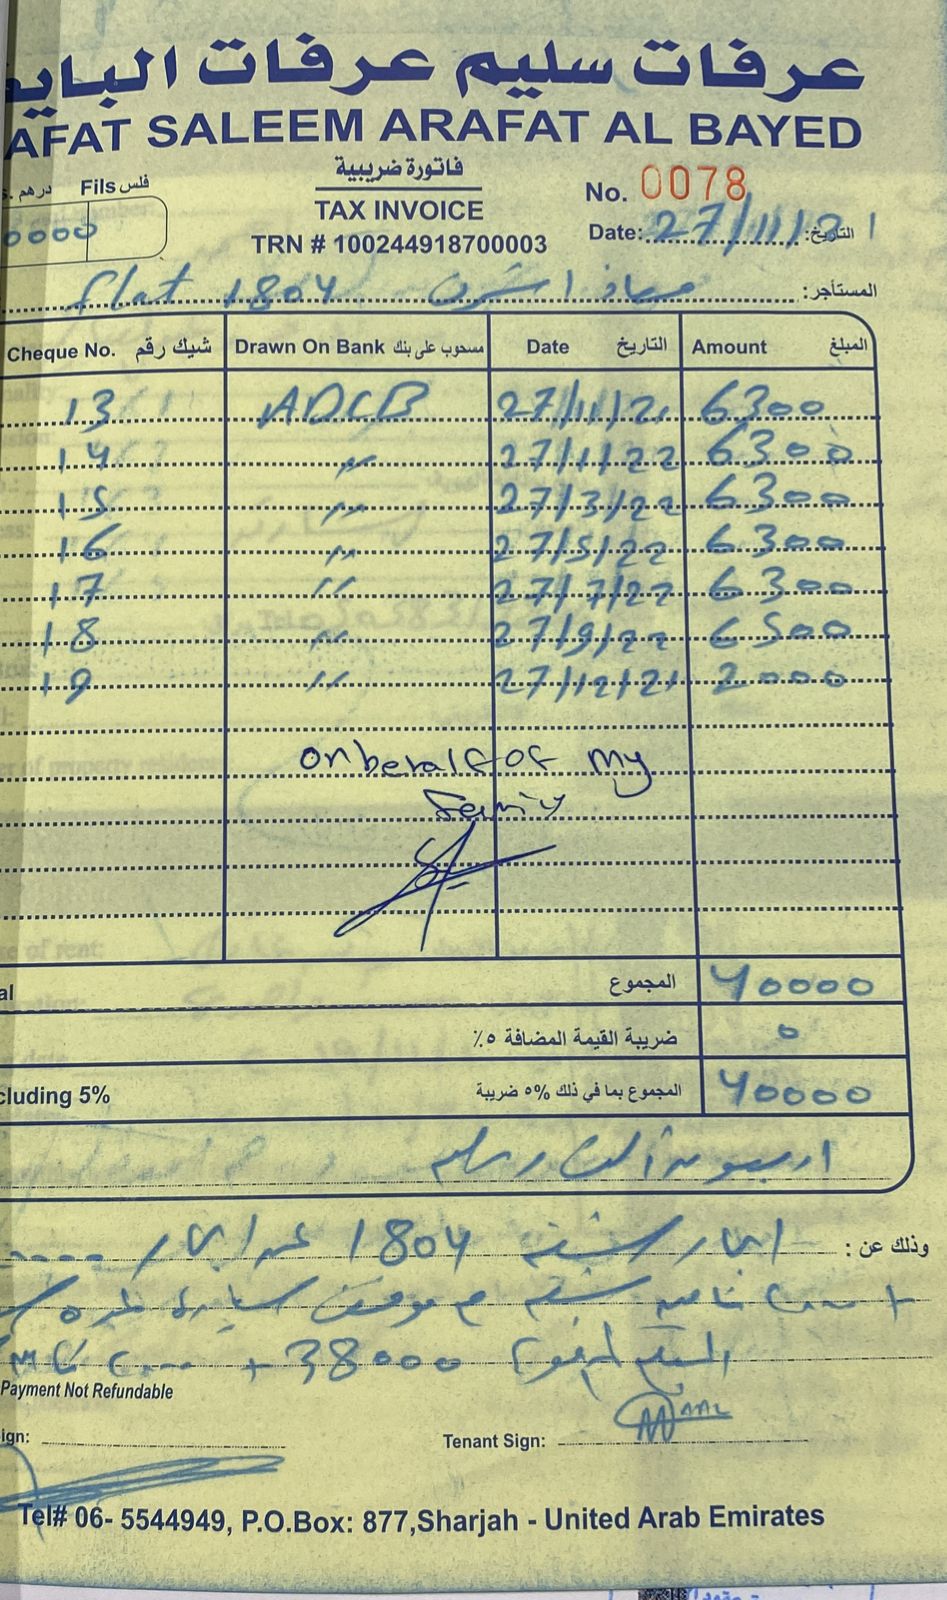 عرفات سليم عرفات البايض
AFAT SALEEM ARAFAT AL BAYED
فاتورة ضريبية
TAX INVOICE
TRN # 100244918700003
درهم .s Fils فلس
0000
No. 0078
Date: 27/11/21 التاريخ:
المستأجر: flat 1804
Cheque No. شيك رقم Drawn On Bank مسحوب على بنك Date التاريخ Amount المبلغ
13 ADCB 27/11/21 6300
14 " 27/1/22 6300
15 " 27/3/22 6300
16 " 27/5/22 6300
17 " 27/7/22 6300
18 " 27/9/22 6500
19 " 27/12/21 2000
on beralf of my
al المجموع 40000
ضريبة القيمة المضافة ٥٪ 0
cluding 5% المجموع بما في ذلك ٥% ضريبة 40000
وذلك عن: ايجار شقة 1804
38000 +
Payment Not Refundable
ign: Tenant Sign:
Tel# 06- 5544949, P.O.Box: 877,Sharjah - United Arab Emirates